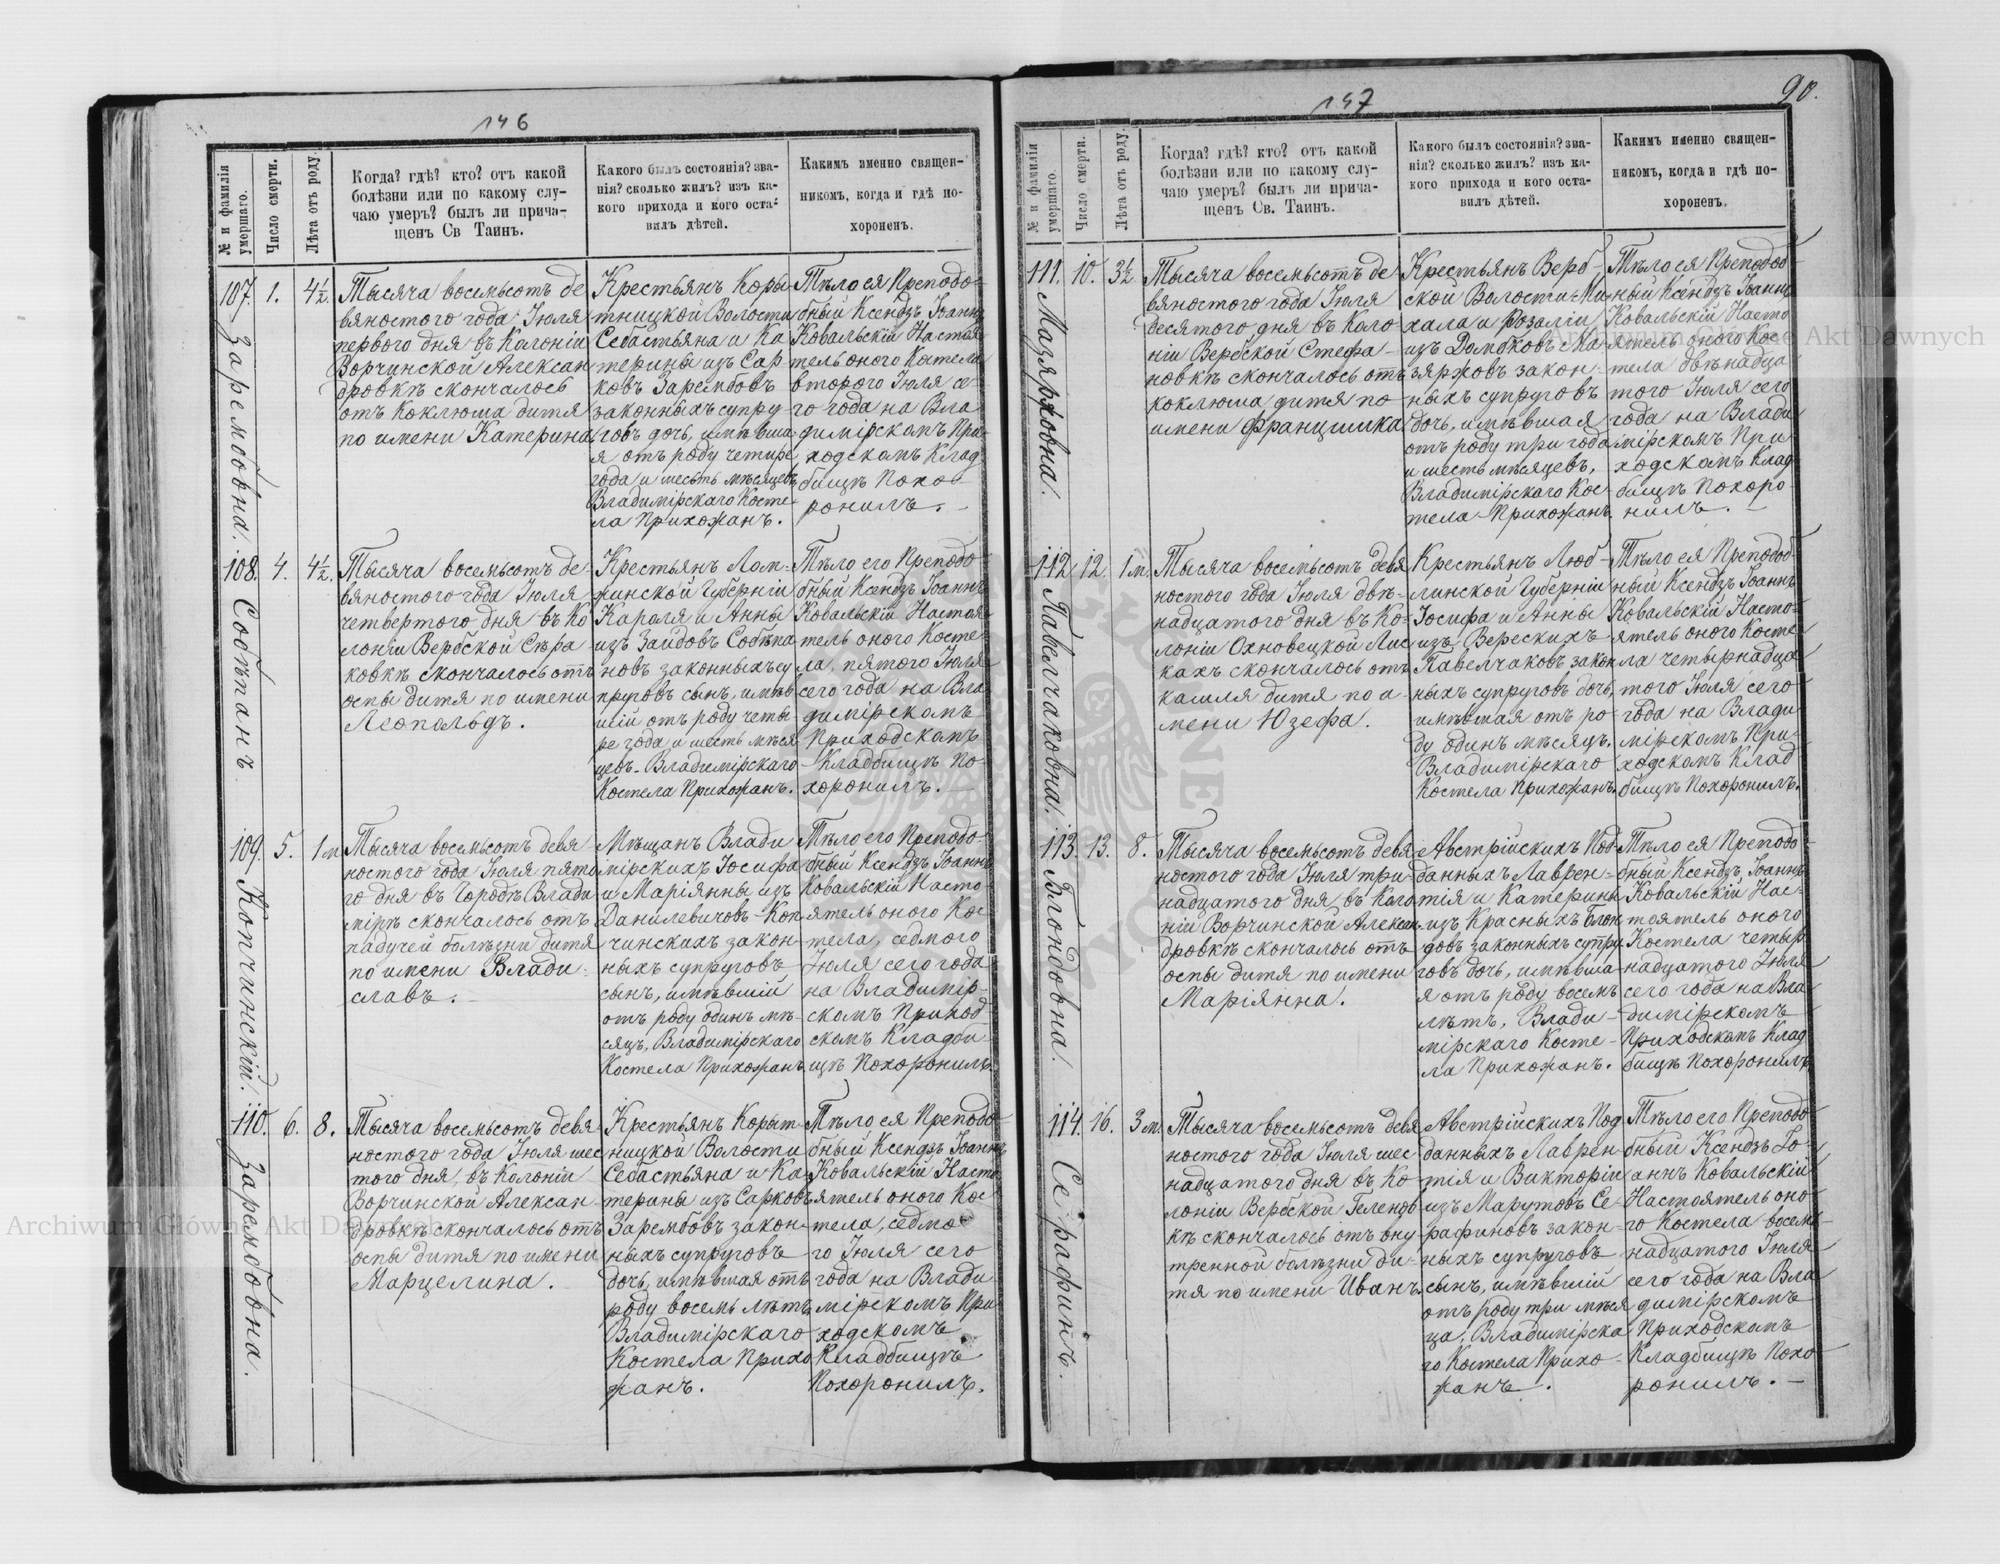 146
№ и фамилія умершаго.
Число смерти.
Лѣта отъ роду.
Когда? гдѣ? кто? отъ какой
болѣзни или по какому слу-
чаю умеръ? былъ ли прича-
щенъ Св Таинъ.
Какого былъ состоянія? зва-
нія? сколько жилъ? изъ ка-
кого прихода и кого оста-
вилъ дѣтей.
Какимъ именно священ-
никомъ, когда и гдѣ по-
хороненъ.
107. Зарембовна.
1.
4½.
Тысяча восемьсотъ де
вяностого года Іюля
первого дня въ Колоніи
Ворчинской Алексан
дровкѣ скончалось
отъ коклюша дитя
по имени Катерина
Крестьянъ Коры
тницкой Волости
Себастьяна и Ка
терины изъ Сар
ковъ Зарембовъ
законныхъ супру
говъ дочь, имѣвша
я отъ роду четыре
года и шесть мѣсяцевъ
Владимірскаго Косте-
ла Прихожанъ.
Тѣло ея Преподо-
бный Ксендзъ Іоаннъ
Ковальскій Настоя
тель оного Костела
второго Іюля се-
го года на Вла
димірскомъ При-
ходскомъ Клад
бищѣ Похо-
ронилъ. —
108. Собѣпанъ
4.
4½.
Тысяча восемьсотъ де-
вяностого года Іюля
четвертого дня въ Ко
лоніи Вербской Сѣра
ковкѣ скончалось отъ
оспы дитя по имени
Леопольдъ.
Крестьянъ Лом-
жинской Губерніи
Кароля и Анны
изъ Заидовъ Собѣпа
новъ законныхъ су
пруговъ сынъ, имѣв
шій отъ роду четы
ре года и шесть мѣся
цевъ. Владимірскаго
Костела Прихожанъ.
Тѣло его Преподо
бный Ксендзъ Іоаннъ
Ковальскій Настоя-
тель оного Косте-
ла, пятого Іюля
сего года на Вла
димірскомъ
Приходскомъ
Кладбищѣ По-
хоронилъ. —
109. Копчинскій.
5.
1 м
Тысяча восемьсотъ девя
ностого года Іюля пято
го дня въ Городѣ Влади
мірѣ скончалось отъ
падучей болѣзни дитя
по имени Влади-
славъ.
Мѣщанъ Влади
мірскихъ Іосифа
и Маріянны изъ
Данилевичовъ Коп
чинскихъ закон-
ныхъ супруговъ
сынъ, имѣвшій
отъ роду одинъ мѣ-
сяцъ, Владимірскаго
Костела Прихожанъ
Тѣло его Преподо-
бный Ксендзъ Іоаннъ
Ковальскій Насто-
ятель оного Кос-
тела, седмого
Іюля сего года
на Владимір-
скомъ Приход
скомъ Кладби-
щѣ Похоронилъ.
110. Зарембовна.
6.
8.
Тысяча восемьсотъ девя-
ностого года Іюля шес
того дня, въ Колоніи
Ворчинской Алексан-
дровкѣ скончалось отъ
оспы дитя по имени
Марцелина.
Крестьянъ Корыт-
ницкой Волости
Себастьяна и Ка
терины изъ Сарковъ
Зарембовъ закон-
ныхъ супруговъ
дочь, имѣвшая отъ
роду восемь лѣтъ
Владимірскаго
Костела Прихо
жанъ.
Тѣло ея Преподо-
бный Ксендзъ Іоаннъ
Ковальскій Насто
ятель оного Кос-
тела, седмо-
го Іюля сего
года на Влади
мірскомъ При
ходскомъ
Кладбищѣ
Похоронилъ.
147
90.
№ и фамилія умершаго.
Число смерти.
Лѣта отъ роду.
Когда? гдѣ? кто? отъ какой
болѣзни или по какому слу-
чаю умеръ? былъ ли прича-
щенъ Св. Таинъ.
Какого былъ состоянія? зва-
нія? сколько жилъ? изъ ка-
кого прихода и кого оста-
вилъ дѣтей.
Какимъ именно священ-
никомъ, когда и гдѣ по-
хороненъ.
111. Мазяржовна.
10.
3½
Тысяча восемьсотъ де
вяностого года Іюля
десятого дня въ Коло-
ніи Вербской Стефа-
новкѣ скончалось отъ
коклюша дитя по
имени Францишка
Крестьянъ Верб-
ской Волости Ми
хала и Розаліи
изъ Домбковъ Ма
зяржовъ закон-
ныхъ супруговъ
дочь, имѣвшая
отъ роду три года
и шесть мѣсяцевъ,
Владимірскаго Кос-
тела Прихожанъ.
Тѣло ея Преподоб-
ный Ксендзъ Іоаннъ
Ковальскій Насто
ятель оного Кос-
тела двѣнадца
того Іюля сего
года на Влади
мірскомъ При-
ходскомъ Клад
бищѣ Похоро-
нилъ. —
112 Павелчаковна.
12.
1 м.
Тысяча восемьсотъ девя
ностого года Іюля двѣ-
надцатого дня въ Ко-
лоніи Охновецкой Лис
кахъ скончалось отъ
кашля дитя по и-
мени Юзефа.
Крестьянъ Люб-
линской Губерніи
Іосифа и Анны
изъ Вереснихъ
Павелчаковъ закон
ныхъ супруговъ дочь,
имѣвшая отъ ро-
ду одинъ мѣсяцъ.
Владимірскаго
Костела Прихожанъ.
Тѣло ея Преподоб-
ный Ксендзъ Іоаннъ
Ковальскій Насто-
ятель оного Косте
ла четырнадца
того Іюля сего
года на Влади
мірскомъ При-
ходскомъ Клад
бищѣ Похоронилъ.
113. Блондовна.
13.
8.
Тысяча восемьсотъ девя
ностого года Іюля три-
надцатого дня, въ Коло
ніи Ворчинской Алексан-
дровкѣ скончалось отъ
оспы дитя по имени
Маріянна.
Австрійскихъ Под
данныхъ Лаврен-
тія и Катерины
изъ Красныхъ Блон
довъ законныхъ супру
говъ дочь, имѣвша-
я отъ роду восемь
лѣтъ, Влади-
мірскаго Косте-
ла Прихожанъ.
Тѣло ея Преподо-
бный Ксендзъ, Іоаннъ
Ковальскій Нас-
тоятель оного
Костела четыр
надцатого Іюля
сего года на Вла
димірскомъ
Приходскомъ Клад
бищѣ Похоронилъ
114. Серафинъ.
16.
3 м.
Тысяча восемьсотъ девя
ностого года Іюля шес-
надцатого дня въ Ко-
лоніи Вербской Геленов
кѣ скончалось отъ вну
тренной болѣзни ди-
тя по имени Иванъ.
Австрійскихъ Под
данныхъ Лаврен
тія и Викторіи
изъ Марутовъ Се-
рафиновъ закон-
ныхъ супруговъ
сынъ, имѣвшій
отъ роду три мѣся
ца, Владимірска
го Костела Прихо-
жанъ.
Тѣло его Преподо
бный Ксендзъ Іо-
аннъ Ковальскій
Настоятель оно-
го Костела восем-
надцатого Іюля
сего года на Вла
димірскомъ
Приходскомъ
Кладбищѣ Похо-
ронилъ. —
Archiwum Główne Akt Dawnych